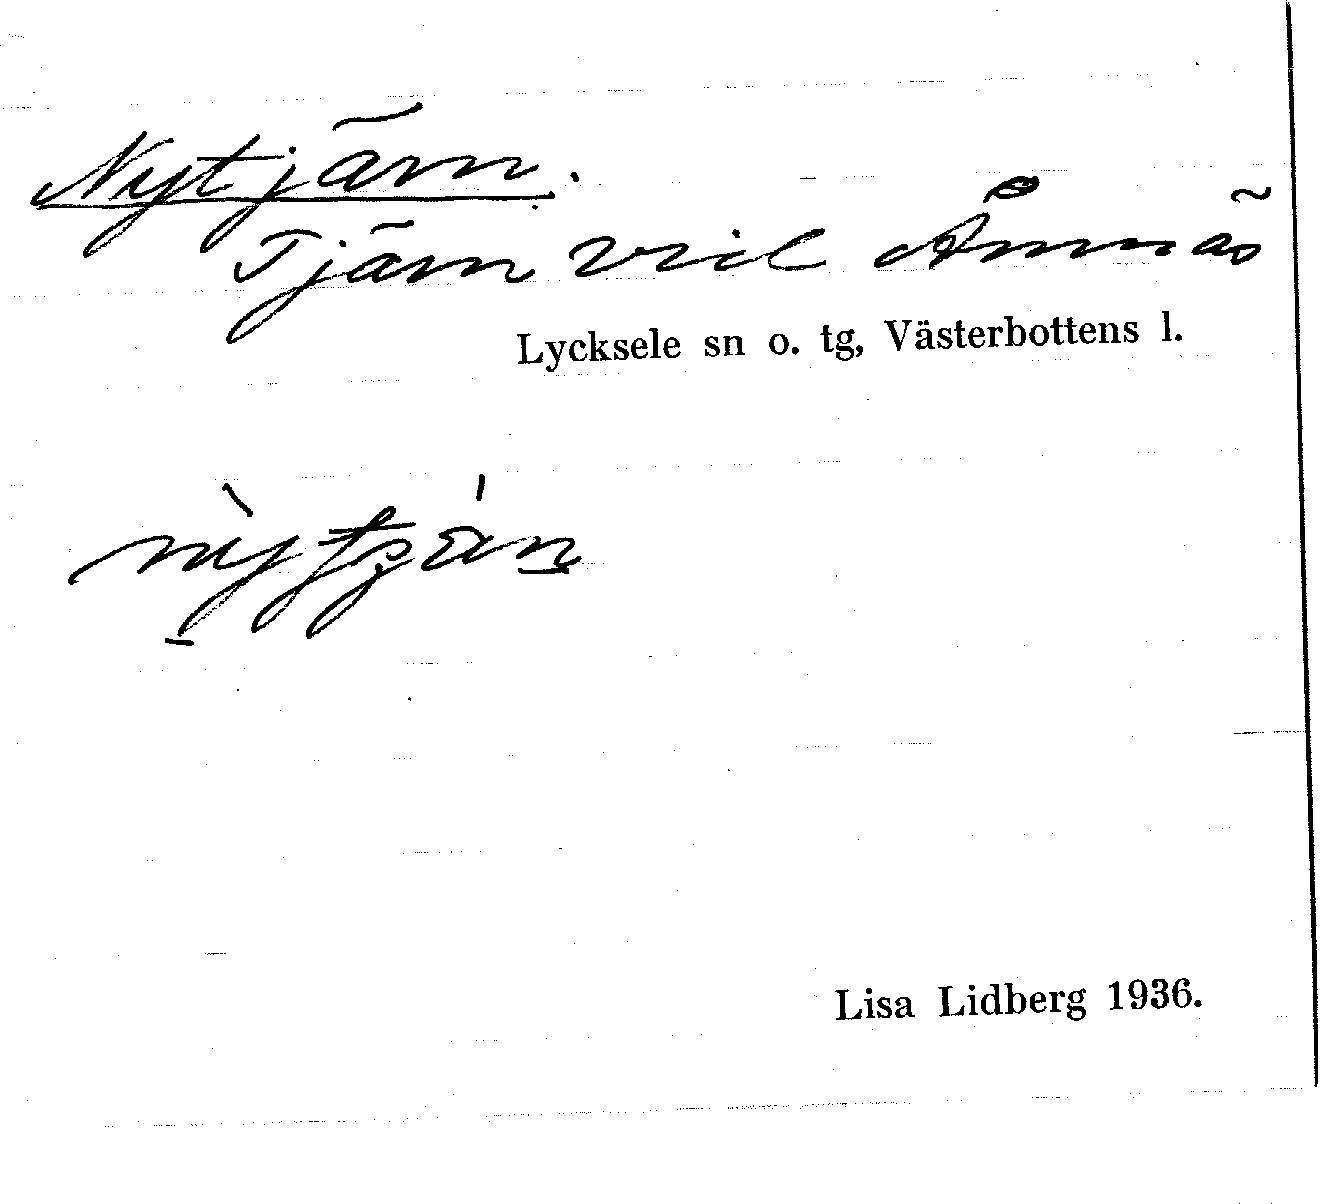 Nytjärn.
Tjärn vid Åmnäs
Lycksele sn o. tg, Västerbottens l.
Lisa Lidberg 1936.